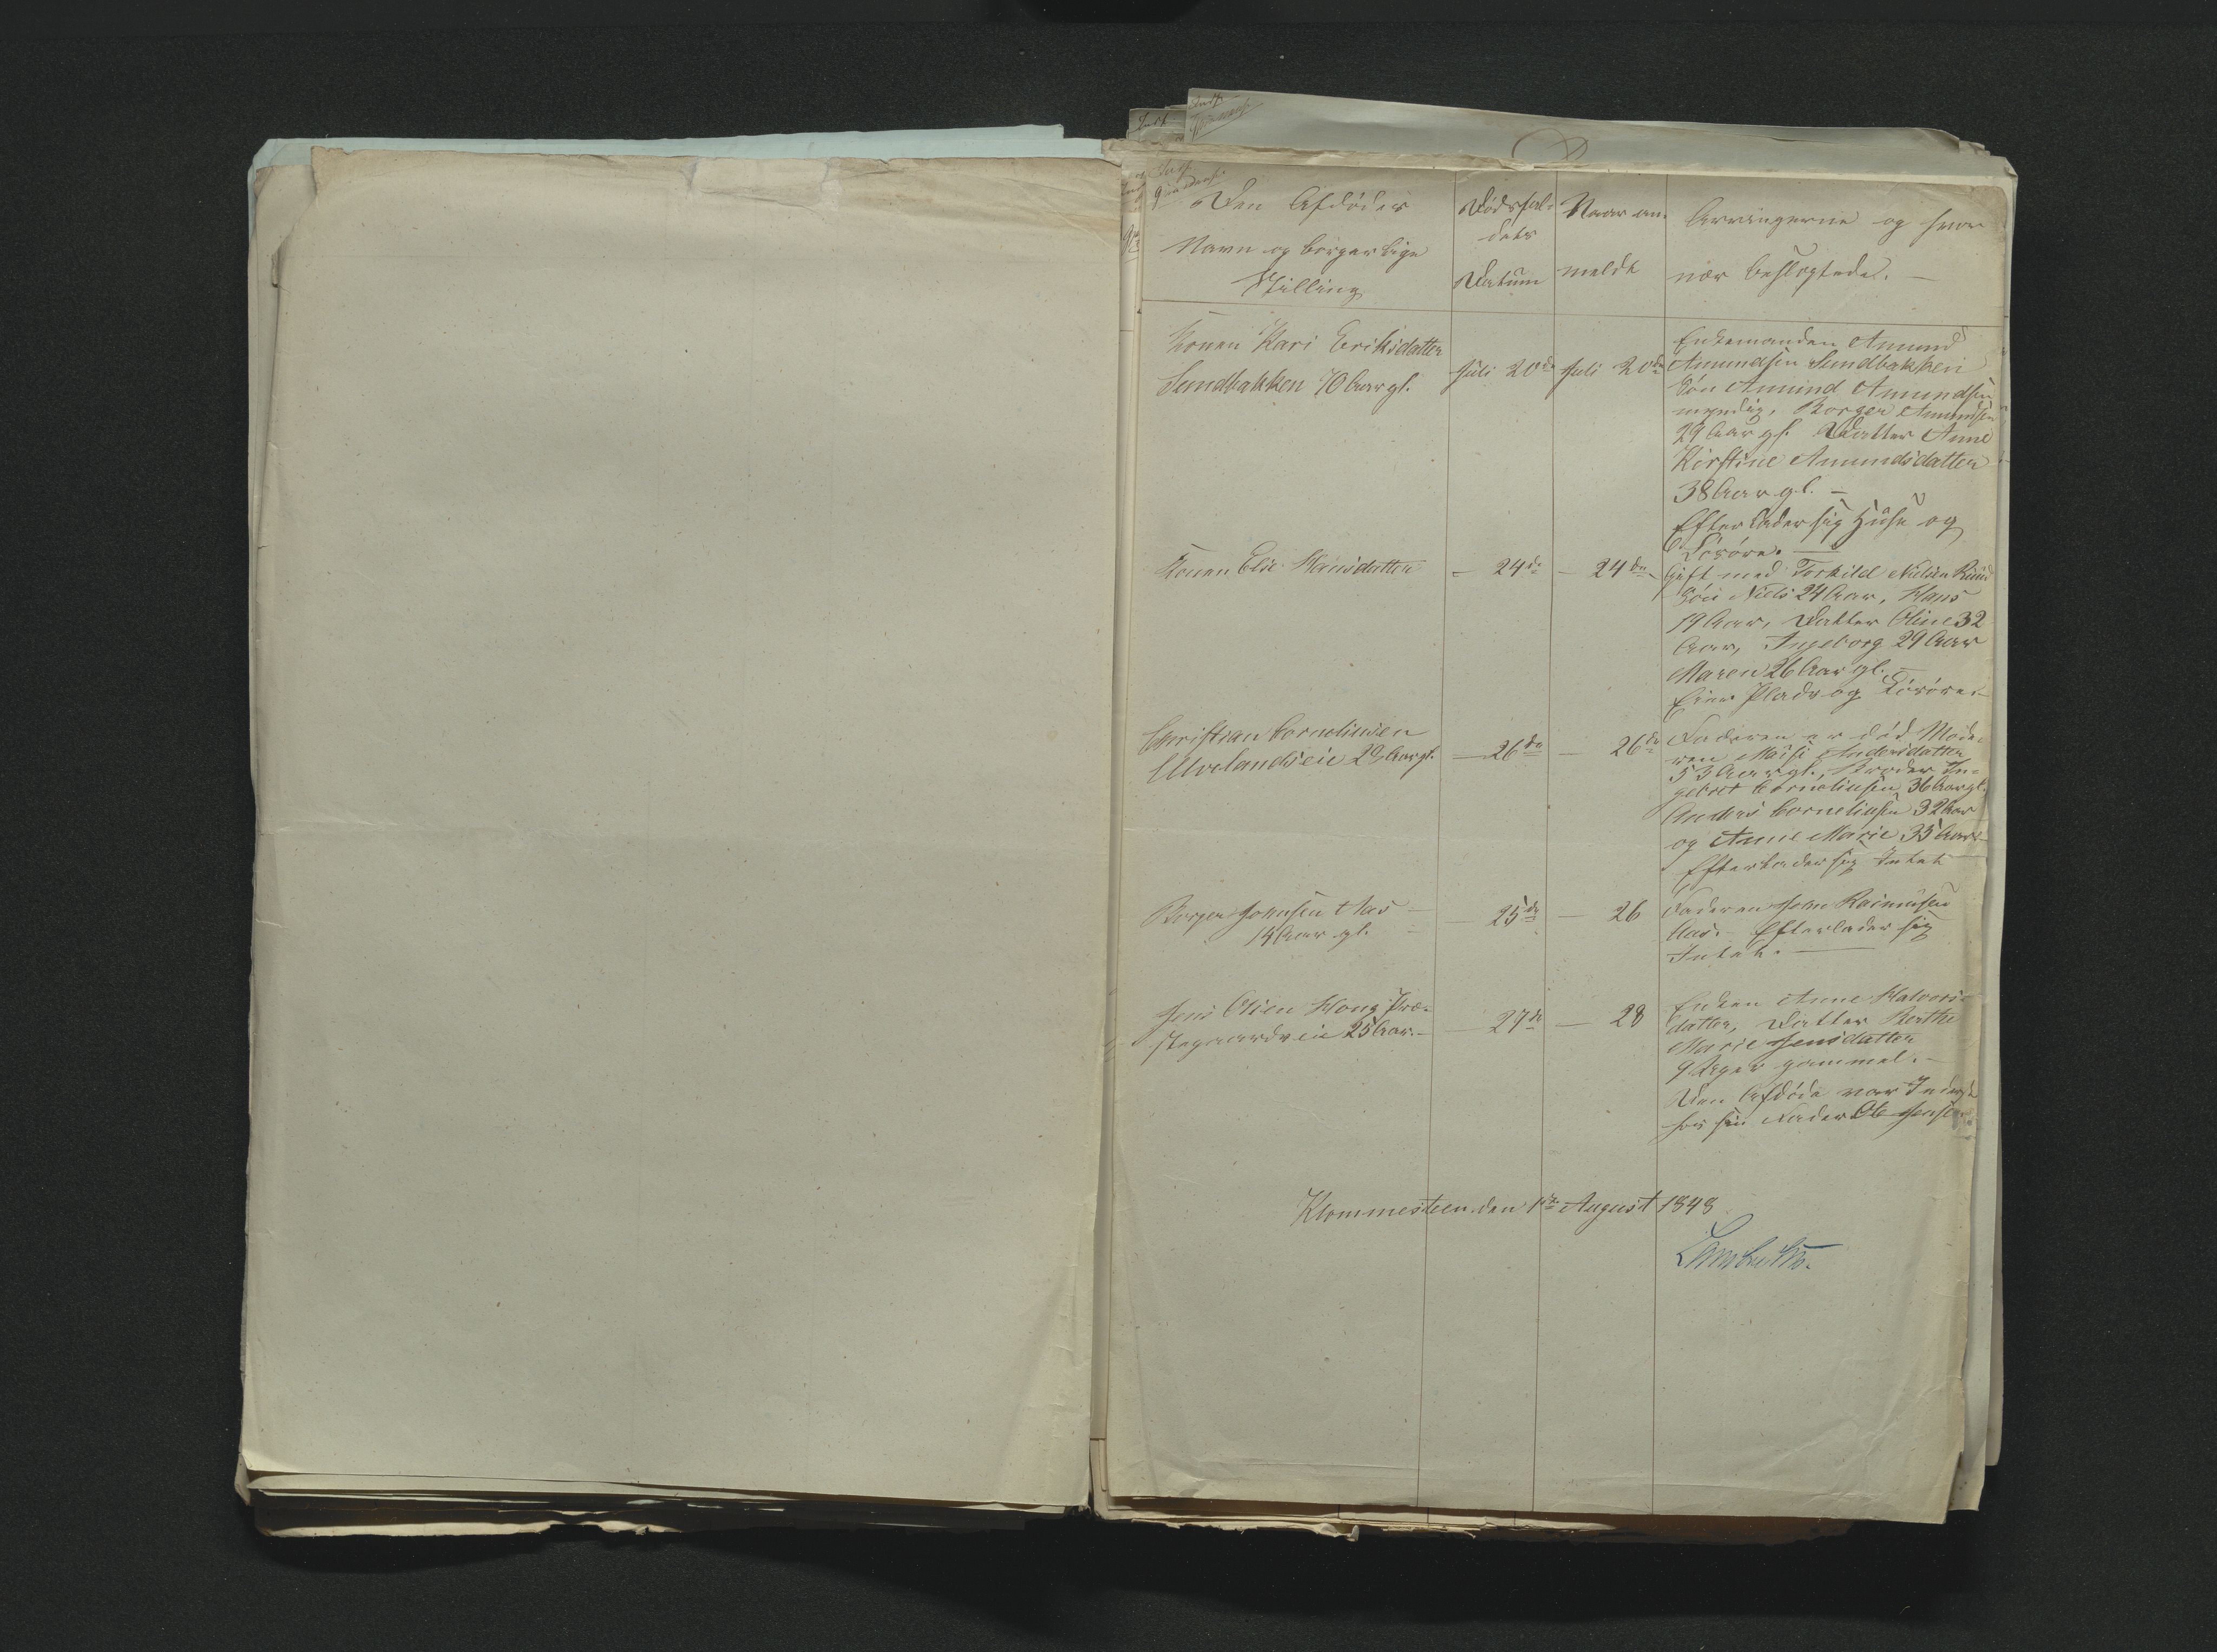 Den Afdødes
Navn og borgerlige
Stilling
Dødsfal-
dets
Datum
Naar an-
meldt
Arvingerne og hvor
nær beslægtede. —
Konen Kari Eriksdatter
Sundbakken 70 Aar gl.
Juli 20de
Juli 20de
Enkemanden Amund
Amundsen Sundbakken
Søn Amund Amundsen
myndig, Borger Amundsen
29 Aar gl. Datter Anne
Kirstine Amundsdatter
38 Aar gl. —
Efterlader sig Huse og
Løsøre. —
Konen Else Hansdatter
— 24de
— 24de
Gift med Torkild Nielsen Ruud
Søn Niels 24 Aar, Hans
19 Aar, Datter Oline 32
Aar, Ingeborg 29 Aar
Maren 26 Aar gl. —
Eier Plads og Løsøre. —
Christian Corneliusen
Ulvelandseie 29 Aar gl.
— 26de
— 26de
Faderen er død Mode-
ren Andersdatter
53 Aar gl., Broder In-
gebret Corneliusen 36 Aar gl.
Anders Corneliusen 32 Aar
og Anne Marie 35 Aar
Efterlader sig Intet
Borger Johnsen Aas —
14 Aar gl.
— 25de
— 26
Faderen John Rasmusen
Aas. — Efterlader sig
Intet. —
Jens Olsen Houg Præ-
stegaardseie 25 Aar. —
— 27de
— 28
Enken Anne Halvors-
datter, Datter Berthe
Marie Jensdatter
9 Uger gammel. —
Den Afdøde var Inderst
hos sin Fader Ole Jensen
Klommesteen den 1ste August 1848